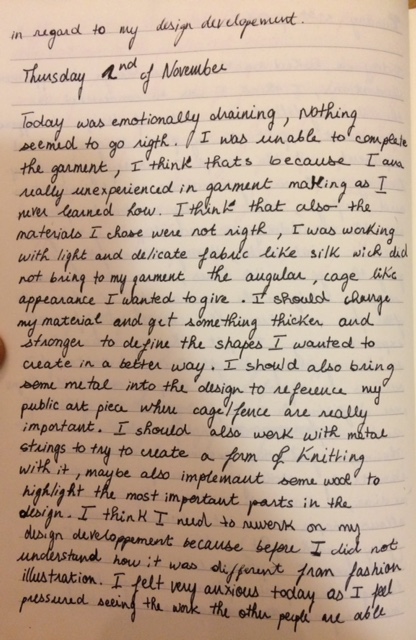 in regard to my design developement.
Thursday 2nd of November
Today was emotionally draining, Nothing
seemed to go rigth. I was unable to complete
the garment, I think thats because I am
really unexperienced in garment making as I
never learned how. I think that also the
materials I chose were not rigth, I was working
with light and delicate fabric like silk wich did
not bring to my garment the angular, cage like
appearance I wanted to give. I should change
my material and get something thicker and
stronger to define the shapes I wanted to
create in a better way. I should also bring
some metal into the design to reference my
public art piece where cage/fence are really
important. I should also work with metal
strings to try to create a form of Knitting
with it, maybe also implemant some wool to
highlight the most important parts in the
design. I think I need to rework on my
design developpement because before I did not
understand how it was different from fashion
illustration. I felt very anxious today as I feel
pressured seeing the work the other people are able